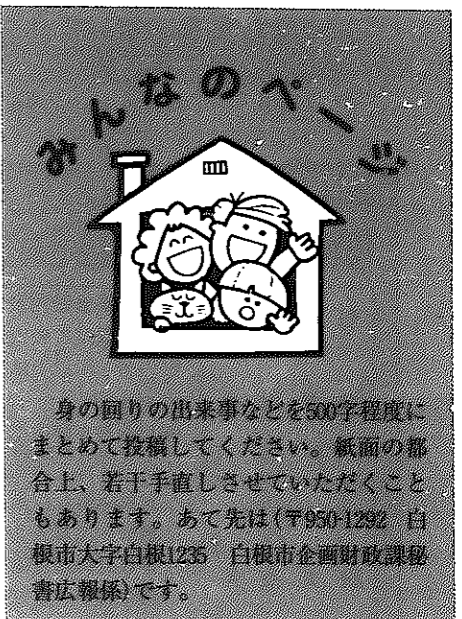 みんなのページ
身の回りの出来事などを500字程度に
まとめて投稿してください。紙面の都
合上、若干手直しさせていただくこと
もあります。あて先は(〒950-1292 白
根市大字白根1235 白根市企画財政課秘
書広報係)です。